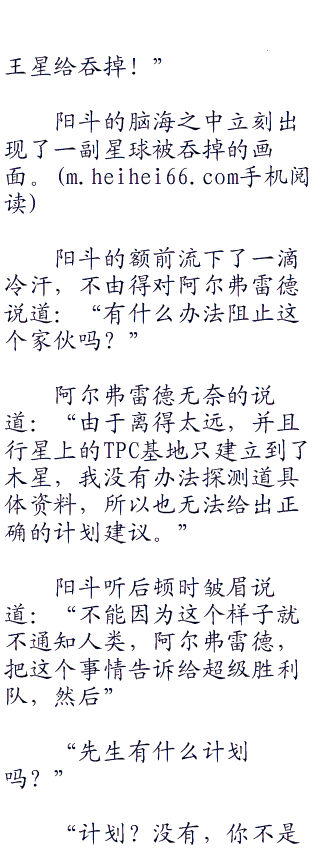 王星给吞掉！”
阳斗的脑海之中立刻出
现了一副星球被吞掉的画
面。(m.heihei66.com手机阅
读)
阳斗的额前流下了一滴
冷汗，不由得对阿尔弗雷德
说道：“有什么办法阻止这
个家伙吗？”
阿尔弗雷德无奈的说
道：“由于离得太远，并且
行星上的TPC基地只建立到了
木星，我没有办法探测道具
体资料，所以也无法给出正
确的计划建议。”
阳斗听后顿时皱眉说
道：“不能因为这个样子就
不通知人类，阿尔弗雷德，
把这个事情告诉给超级胜利
队，然后”
“先生有什么计划
吗？”
“计划？没有，你不是